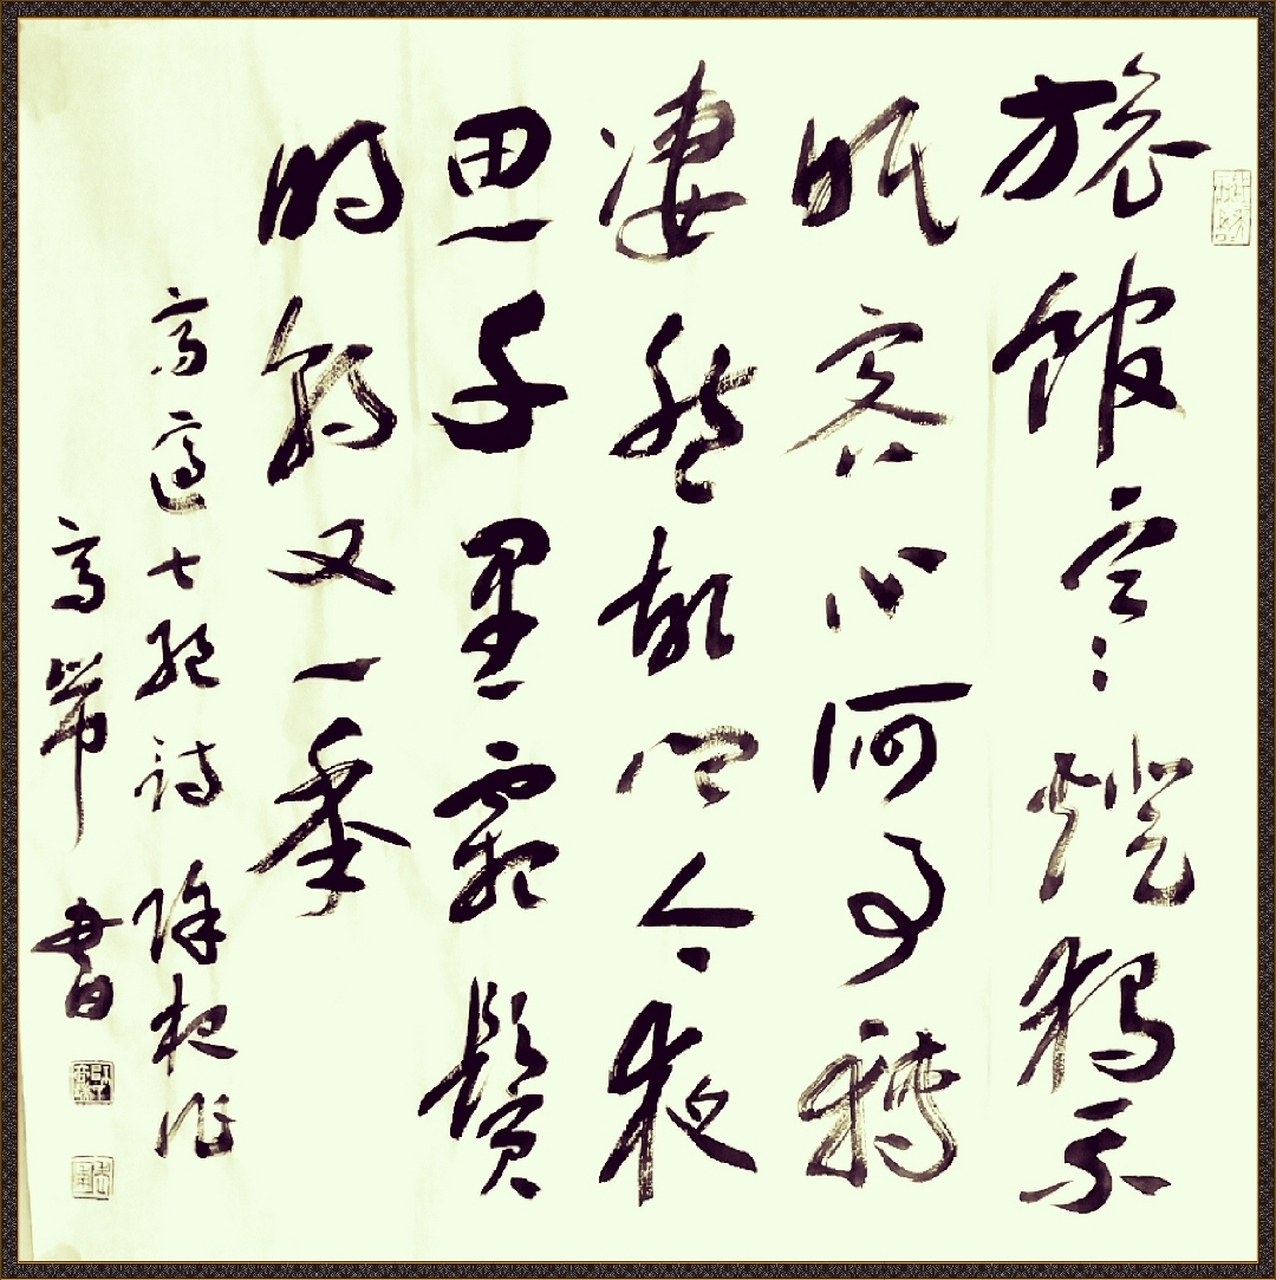 旅館寒燈獨不
眠客心何事轉
凄然故鄉今夜
思千里霜鬢
明朝又一秊
高適七絕詩 除夜作
高 書